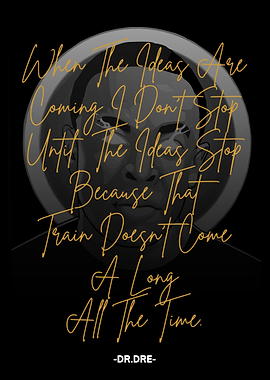 When The Ideas Are
Coming I Don't Stop
Until The Ideas Stop
Because That
Train Doesn't Come
A Long
All The Time.
-DR.DRE-